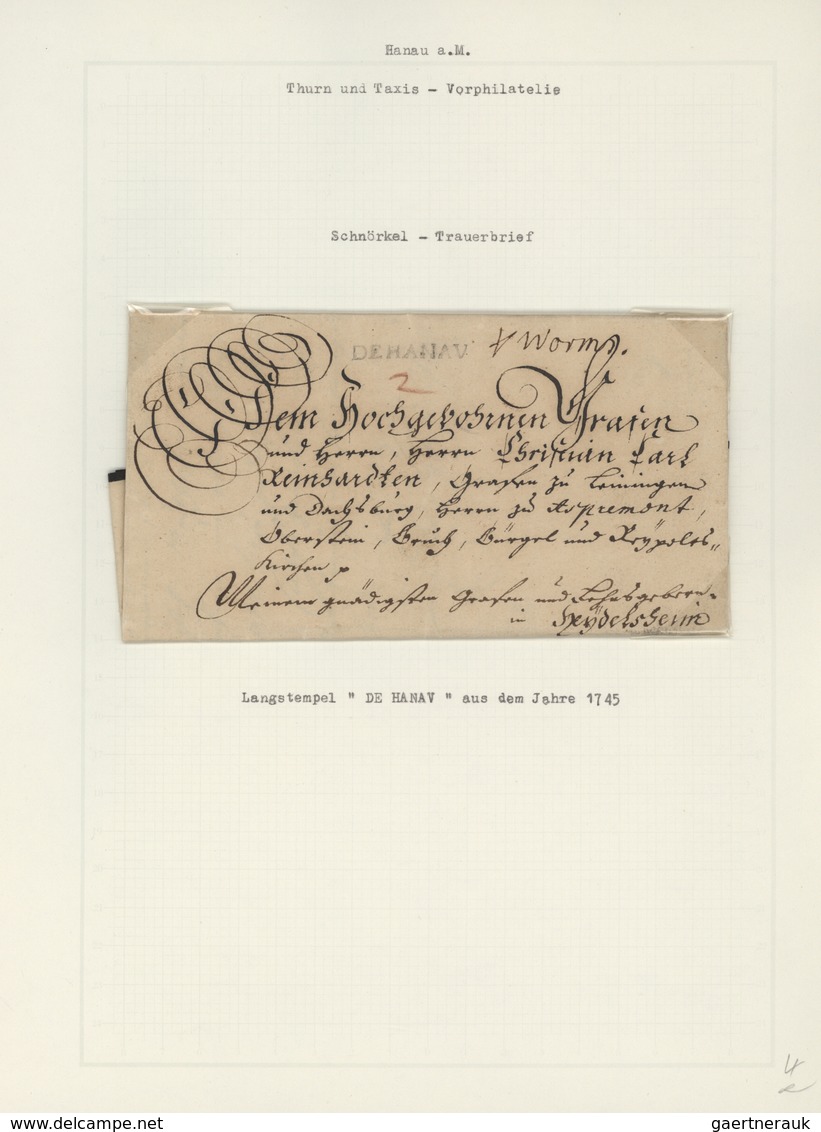 Hanau a.M.
Thurn und Taxis - Vorphilatelie
Schnörkel - Trauerbrief
DE HANAV
Worms.
2
Dem Hochgebohrnen Grafen
und Herrn, Herrn Christian Carl
Reinhardten, Grafen zu Leiningen
und Dachsburg, Herrn zu Aspremont,
Oberstein, Bruch, Bürgel und Reÿpolts„
Kirchen
Meinem gnädigsten Grafen und
in Heÿdelsheim
Langstempel " DE HANAV " aus dem Jahre 1745
www.delcampe.net
gaertnerauk